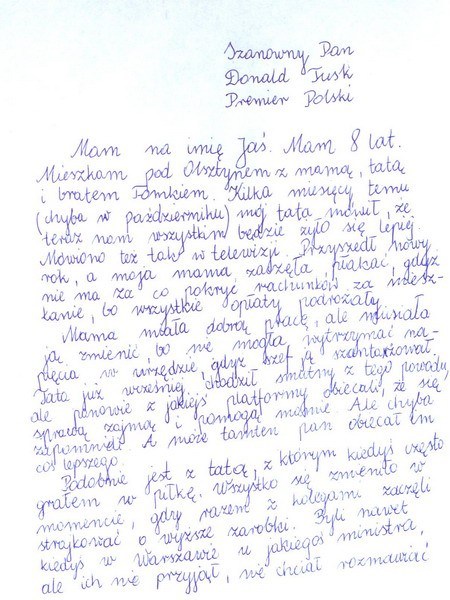 Szanowny Pan
Donald Tusk
Premier Polski
Mam na imię Jaś. Mam 8 lat.
Mieszkam pod Olsztynem z mamą, tatą
i bratem Tomkiem. Kilka miesięcy temu
(chyba w październiku) mój tata mówił, że
teraz nam wszystkim będzie żyło się lepiej.
Mówiono też tak w telewizji. Przyszedł nowy
rok, a moja mama zaczęła płakać, gdyż
nie ma za co pokryć rachunków za miesz-
kanie, bo wszystkie opłaty podrożały.
Mama miała dobrą pracę, ale musiała
ją zmienić, bo nie mogła wytrzymać na-
pięcia w urzędzie, gdyż szef ją szantażował.
Tata już wcześniej chodził smutny z tego powodu,
ale panowie z jakiejś platformy obiecali, że się
sprawą zajmą i pomogą mamie. Ale chyba
zapomnieli. A może tamten pan obiecał im
coś lepszego.
Podobnie jest z tatą, z którym kiedyś często
grałem w piłkę. Wszystko się zmieniło w
momencie, gdy razem z kolegami zaczęli
strajkować o wyższe zarobki. Byli nawet
kiedyś w Warszawie u jakiegoś ministra,
ale ich nie przyjął, nie chciał rozmawiać